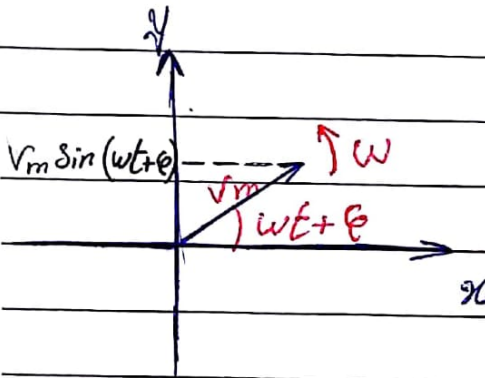 y
Vm Sin (wt+φ)
Vm
ω
wt+φ
x